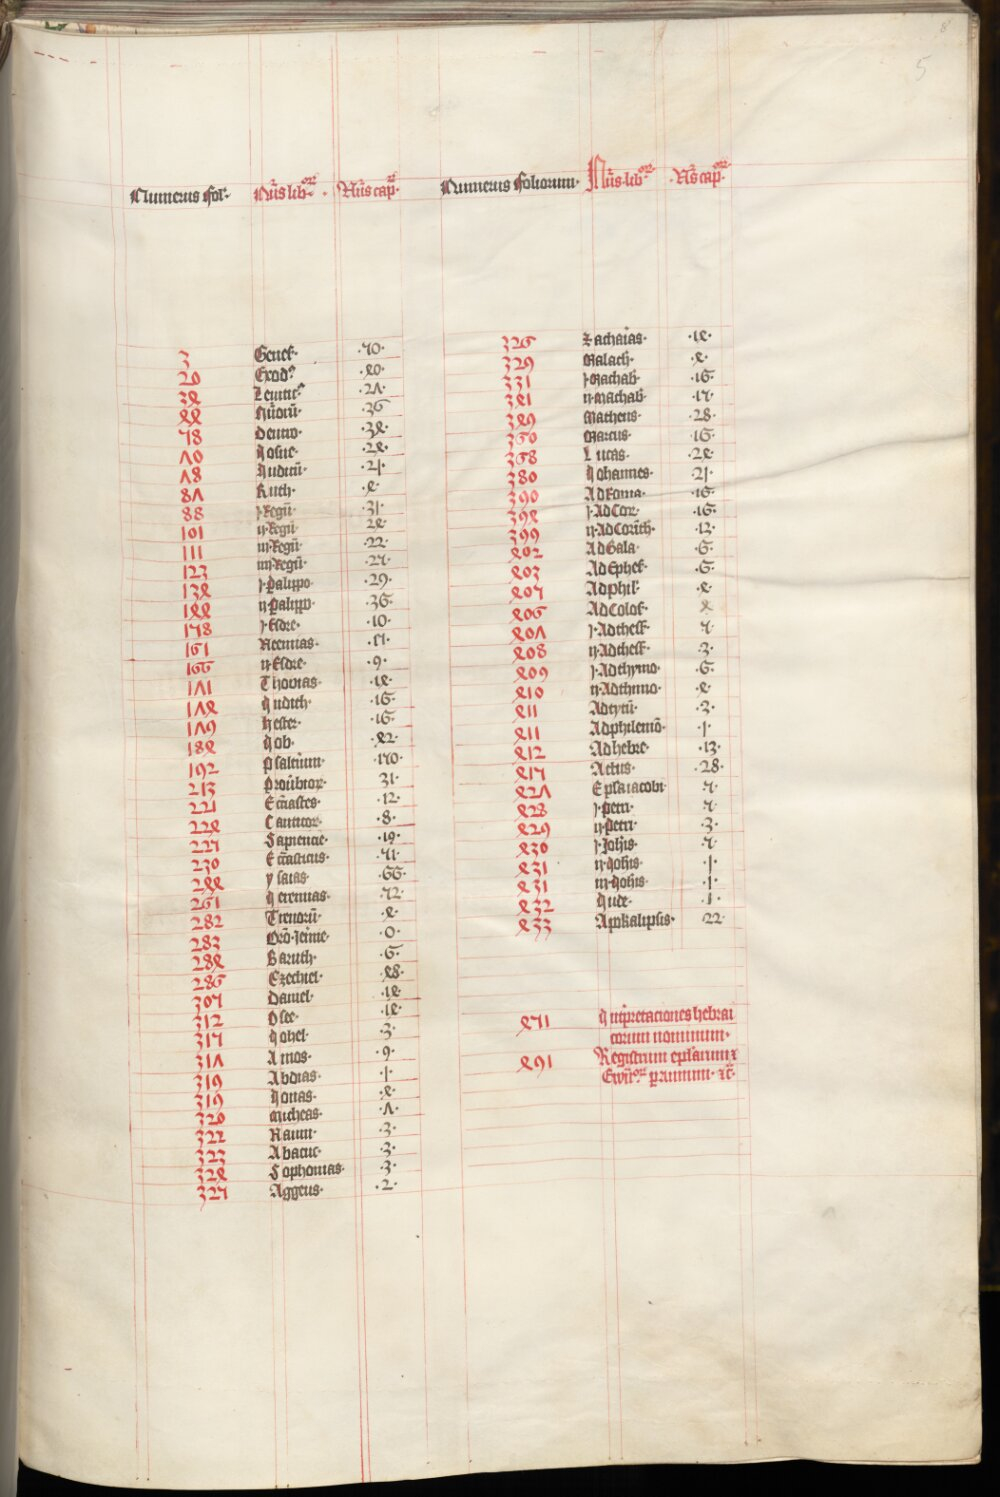 Numerus fol͛· Nūs lib͛oꝝ· Nūs cap͛·
3 Genes· ·50·
20 Exod͛ ·40·
34 Leuitic͛ ·27·
44 Nūorū· ·36
58 Deutro· ·34·
70 Josue· ·24·
78 Judicū· ·21·
87 Ruth· ·4·
88 j·Regū· ·31·
101 ij·Regū· 24·
111 iij·Regū· ·22·
123 iiij·Regū· ·25·
134 j·Palippo· ·29·
144 ij·Palipp̄o· ·36·
158 j·Esdre· ·10·
161 Neemias·
166 ij·Esdre· ·9·
171 Thobias· ·14·
174 Judith· ·16·
179 Hester· ·16·
184 Job· ·42·
192 Psalteriūm· ·150·
213 Prou̅bioꝝ· 31·
221 Ec̄c̄iastes· ·12·
224 Canticoꝝ· ·8·
225 Sapiencie· ·19·
230 Ec̄c̄iasticus· ·51·
244 ysaias· ·66·
261 Jeremias· ·52·
282 Trenorū· ·4·
283 Orō·Jeīmie· ·0·
284 Baruch· ·6·
286 Ezechiel· ·48·
305 Daniel· ·14·
312 Osee· ·14·
315 Johel· ·3·
317 Amos· ·9·
319 Abdias· ·1·
319 Jonas· ·4·
320 Micheas· ·7·
322 Naum· ·3·
323 Abacuc· ·3·
324 Sophonias· ·3·
325 Aggeus· ·2·
Numerus foliorum· Nūs·lib͛oꝝ ·Nūs cap͛oꝝ·
326 Zacharias· ·14·
329 Malach· ·4·
331 j·Machab̄· ·16·
341 ij·Machab̄· ·15·
349 Matheus· ·28·
360 Marcus· ·16·
368 Lucas· ·24·
380 Johannes· ·21·
390 Ad Roma· ·16·
394 j·Ad Cor· ·16·
399 ij·Ad Corīth· ·12·
402 Ad Gala· ·6·
403 Ad Ephes· ·6·
405 Ad phil· ·4·
406 Ad Colos· 4
407 j·Ad thess· ·5·
408 ij·Ad thess· ·3·
409 j·Ad thymo· ·6·
410 ij·Ad thimo· ·4·
411 Ad tytū· ·3·
411 Ad philemō· ·1·
412 Ad hebre· ·13·
415 Actus· ·28·
427 Epl̄a iacobi· 5·
428 j·petri· ·5·
429 ij·petri· ·3·
430 j·Joh̄is· ·5·
431 ij·Joh̄is· ·1·
431 iij·Joh̄is· ·1·
432 Jude· ·1·
433 Apokalipsis· 22·
451 Jntpretaciones hebrai
corum nominum·
491 Registrum epl̄arum ⁊